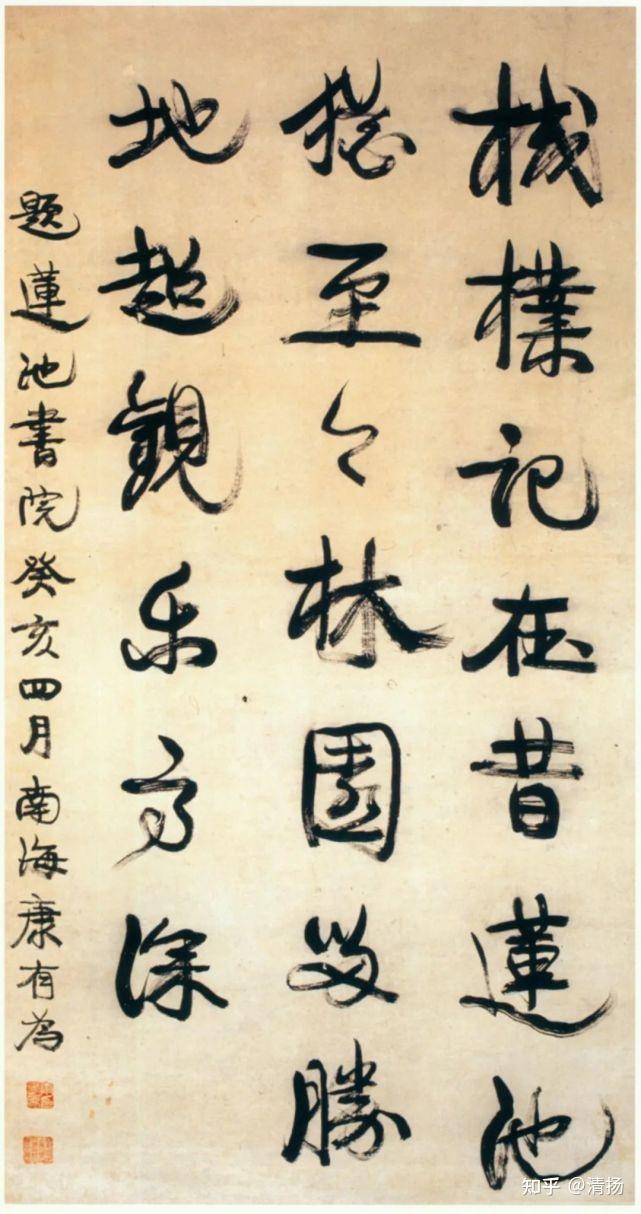 棫樸記在昔蓮池
猶至今林園留勝
地超觀樂高深
題蓮池書院癸亥四月南海康有為
知乎 @清扬